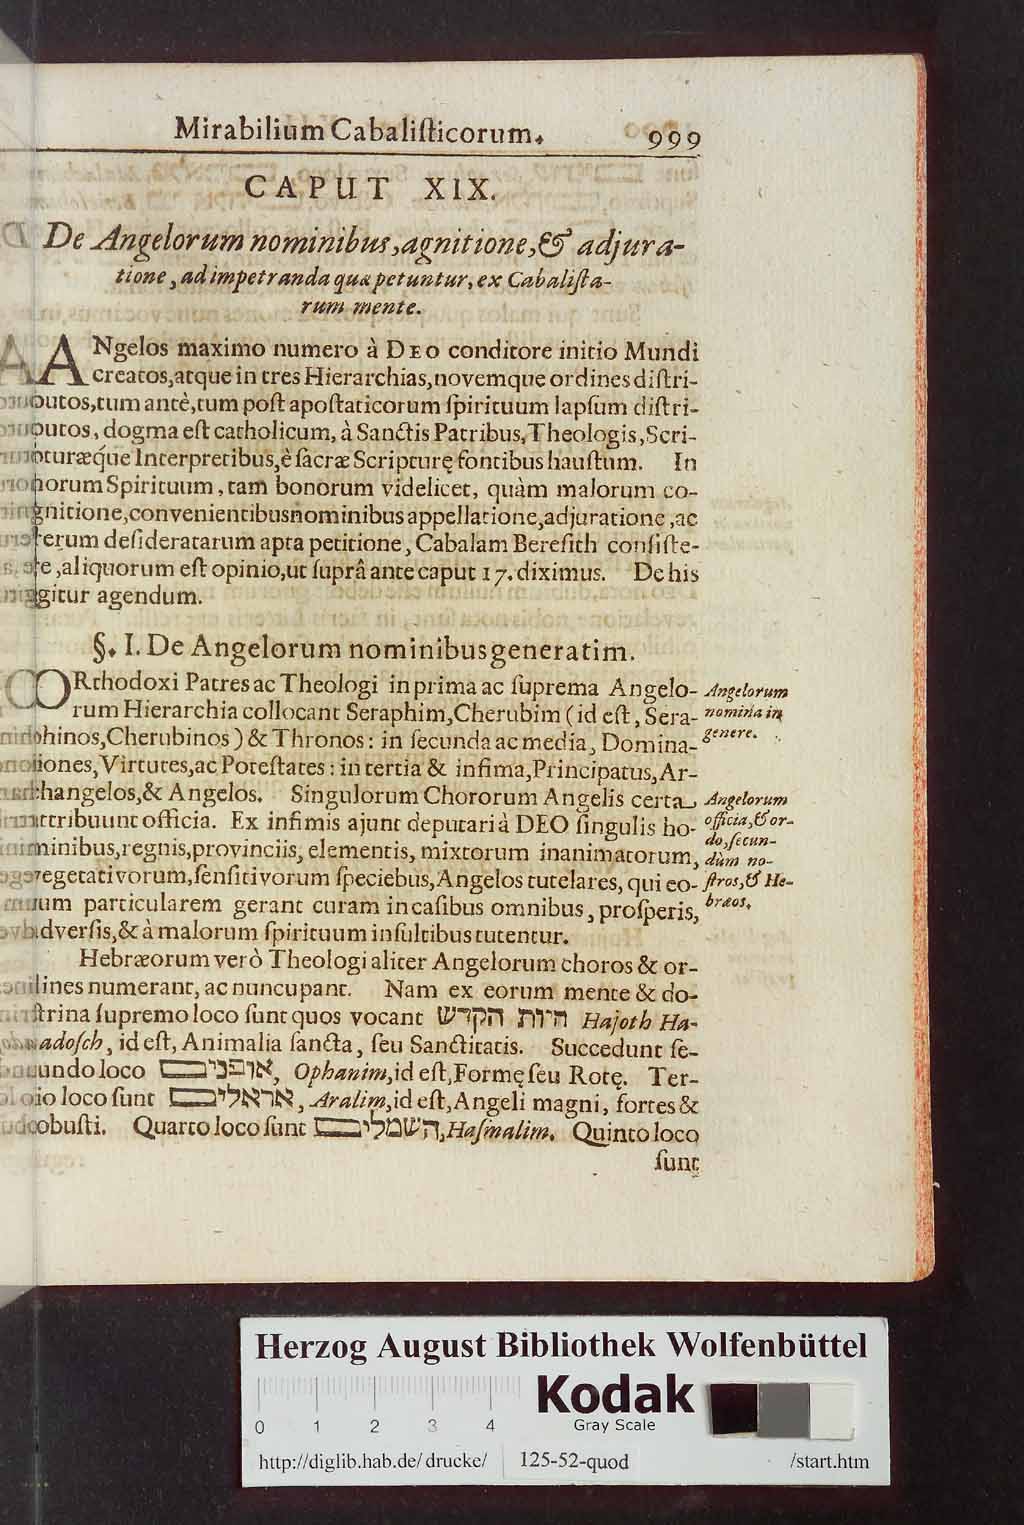 Mirabilium Cabaliſticorum. 999
CAPUT XIX.
De Angelorum nominibus, agnitione, & adjura-
tione, ad impetranda quæ petuntur, ex Cabaliſta-
rum mente.
ANgelos maximo numero à DEO conditore initio Mundi
creatos, atque in tres Hierarchias, novemque ordines diſtri-
butos, tum antè, tum poſt apoſtaticorum ſpirituum lapſum diſtri-
butos, dogma eſt catholicum, à Sanctis Patribus, Theologis, Scri-
pturæq́ue Interpretibus, è ſacræ Scripturę fontibus hauſtum. In
horum Spirituum, tam bonorum videlicet, quàm malorum co-
gnitione, convenientibus nominibus appellatione, adjuratione, ac
rerum deſideratarum apta petitione, Cabalam Bereſith conſiſte-
re, aliquorum eſt opinio, ut ſuprâ ante caput 17. diximus. De his
igitur agendum.
§. I. De Angelorum nominibus generatim.
ORthodoxi Patres ac Theologi in prima ac ſuprema Angelo-
rum Hierarchia collocant Seraphim, Cherubim (id eſt, Sera-
phinos, Cherubinos) & Thronos: in ſecunda ac media, Domina-
tiones, Virtutes, ac Poteſtates: in tertia & infima, Principatus, Ar-
changelos, & Angelos. Singulorum Chororum Angelis certa
attribuunt officia. Ex infimis ajunt deputari à DEO ſingulis ho-
minibus, regnis, provinciis, elementis, mixtorum inanimatorum,
vegetativorum, ſenſitivorum ſpeciebus, Angelos tutelares, qui eo-
rum particularem gerant curam in caſibus omnibus, proſperis,
adverſis, & à malorum ſpirituum inſultibus tutentur.
Angelorum
nomina in
genere.
Angelorum
officia, & or-
do, ſecun-
dùm no-
ſtros, & He-
bræos.
Hebræorum verò Theologi aliter Angelorum choros & or-
dines numerant, ac nuncupant. Nam ex eorum mente & do-
ctrina ſupremo loco ſunt quos vocant חיות הקדש Hajoth Ha-
kadoſch, id eſt, Animalia ſancta, ſeu Sanctitatis. Succedunt ſe-
cundo loco אופנים, Ophanim, id eſt, Formę ſeu Rotę. Ter-
tio loco ſunt אראלים, Aralim, id eſt, Angeli magni, fortes &
robuſti. Quarto loco ſunt השמלים, Haſmalim. Quinto loco
ſunt
Herzog August Bibliothek Wolfenbüttel
Kodak
Gray Scale
0 1 2 3 4
http://diglib.hab.de/drucke/ 125-52-quod /start.htm